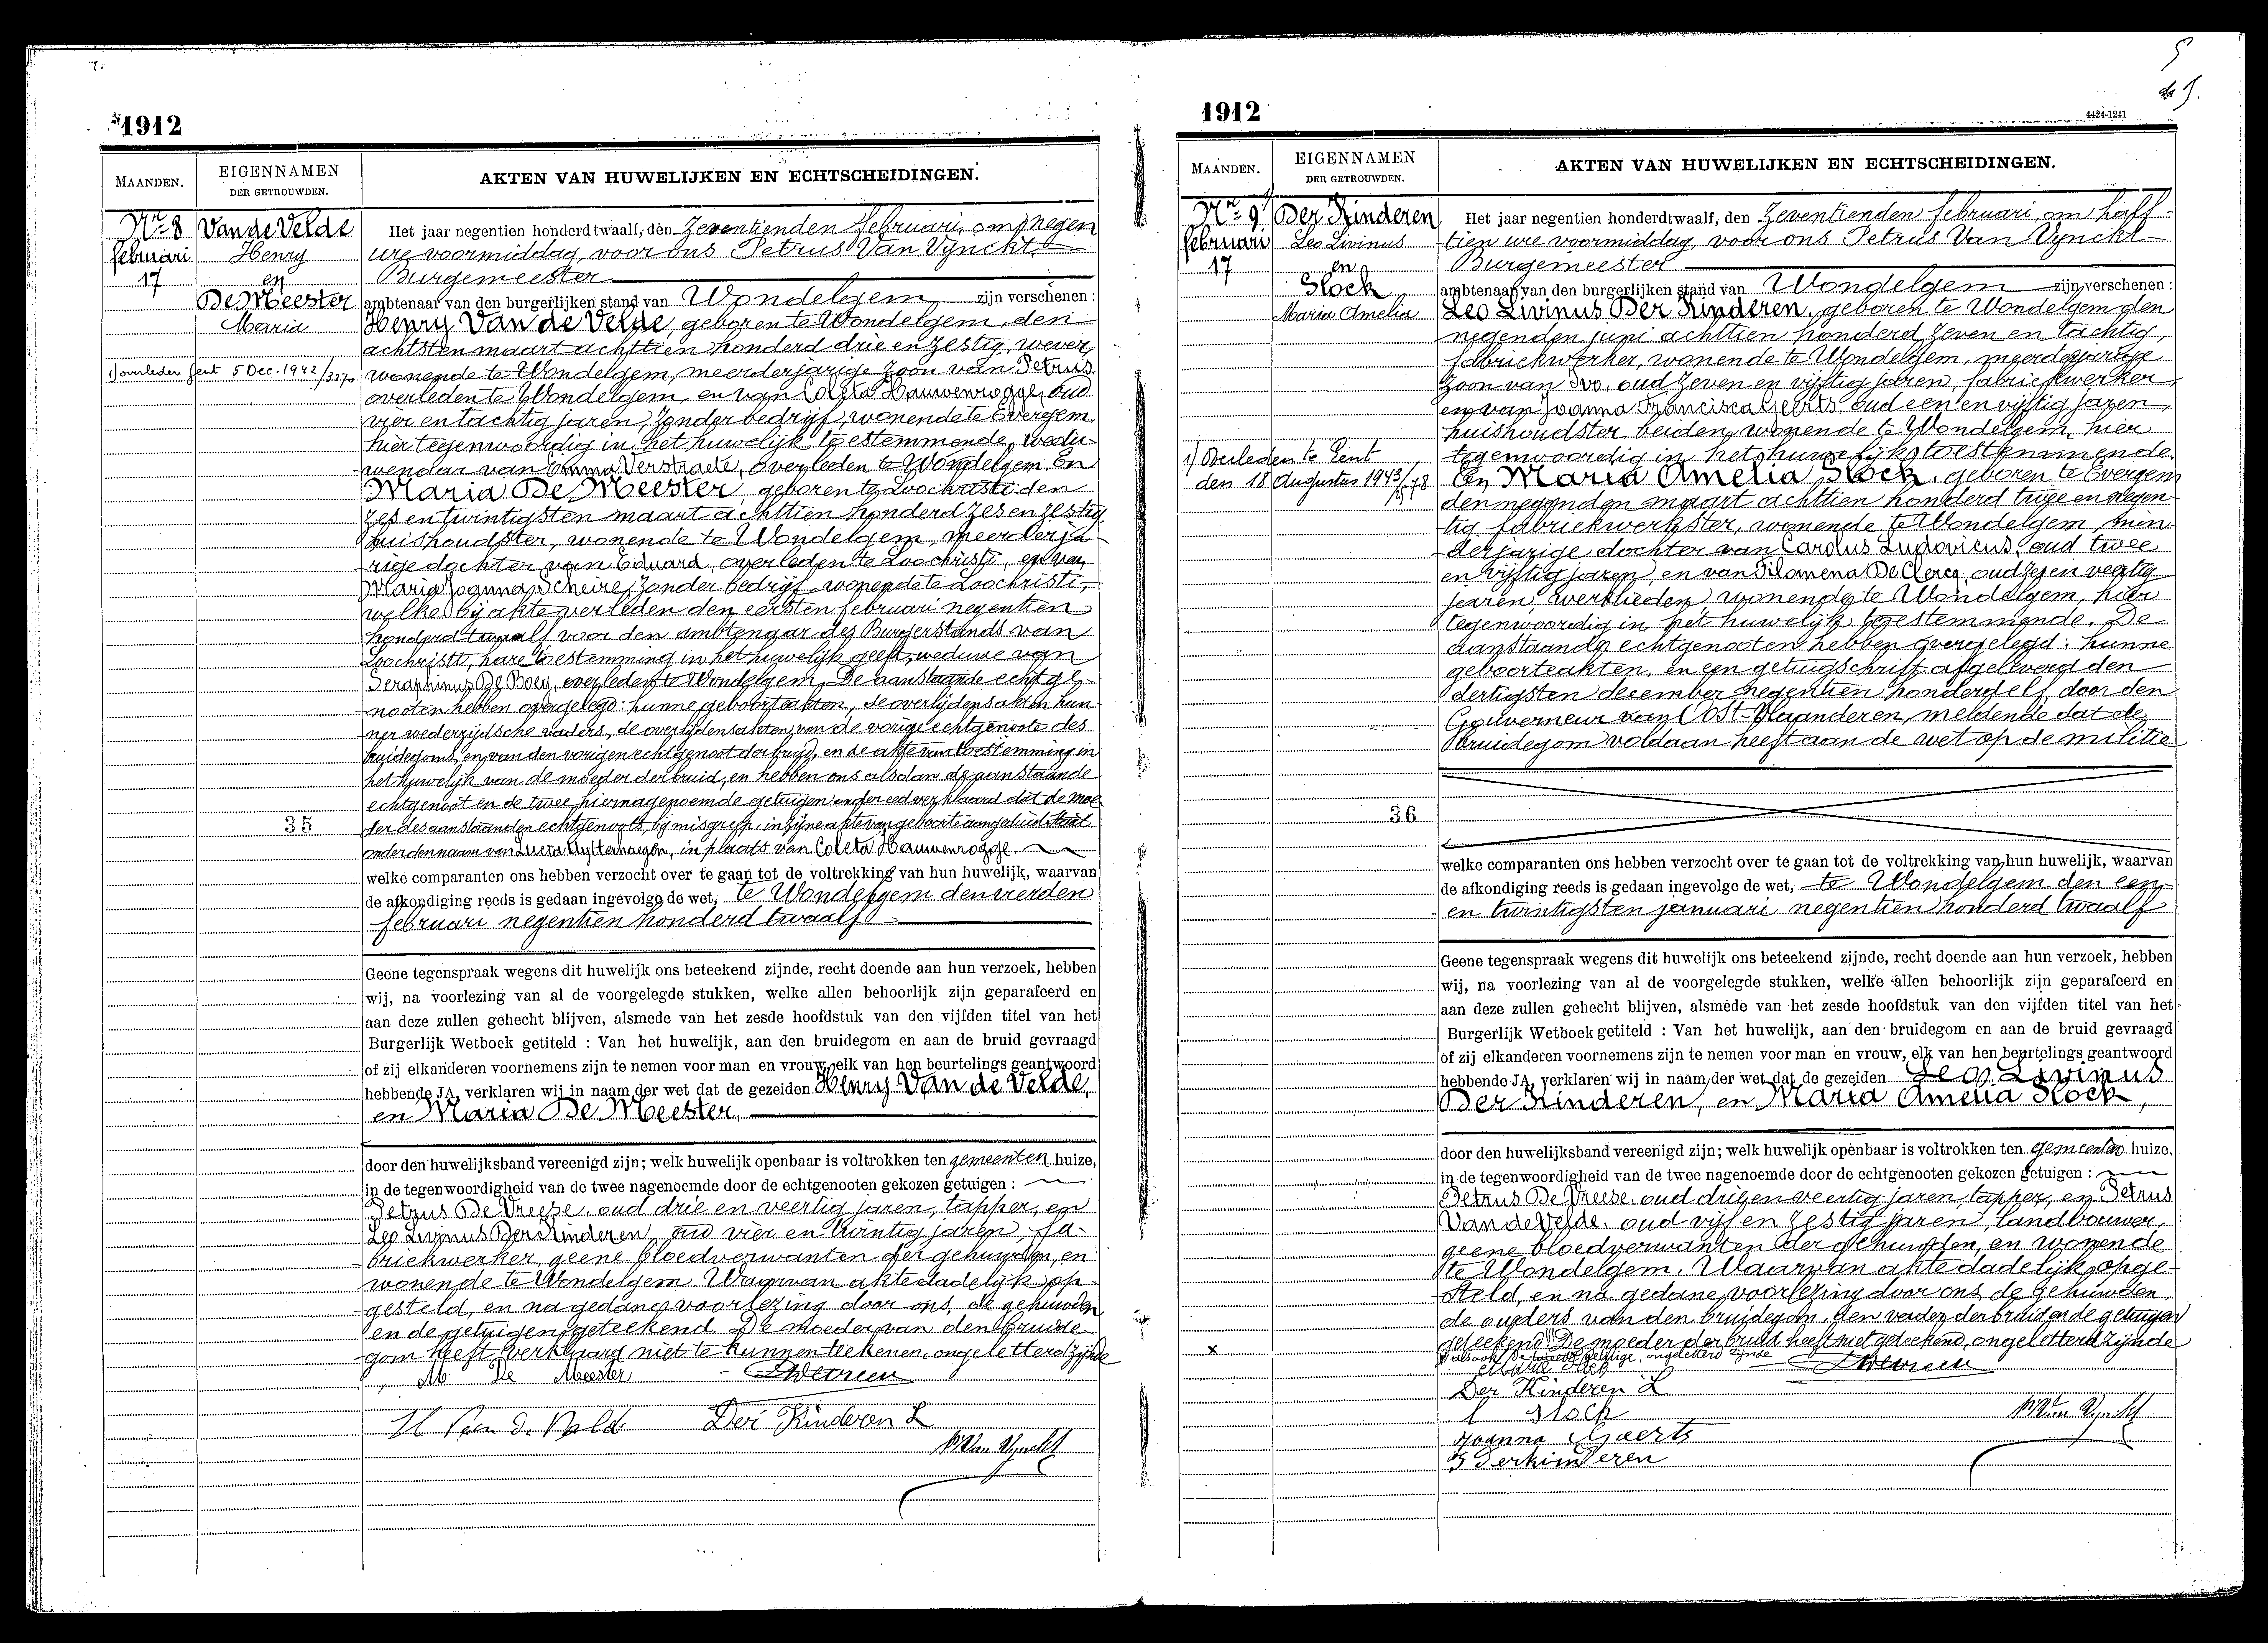 1912
MAANDEN.
EIGENNAMEN
DER GETROUWDEN.
AKTEN VAN HUWELIJKEN EN ECHTSCHEIDINGEN.
Nr 8
februari
17
Van de Velde
Henry
en
De Meester
Maria
1) overleden Gent 5 Dec. 1942/3270
35
Het jaar negentien honderd twaalf, den zeventienden februari, om negen
ure voormiddag, voor ons Petrus Van Vynckt
Burgemeester
ambtenaar van den burgerlijken stand van Wondelgem zijn verschenen :
Henry Van de Velde, geboren te Wondelgem, den
achtsten maart achttien honderd drie en zestig, wever,
wonende te Wondelgem, meerderjarige zoon van Petrus
overleden te Wondelgem, en van Coleta Hauwenrogge, oud
vier en tachtig jaren, zonder bedrijf, wonende te Evergem,
hier tegenwoordig in het huwelijk toestemmende, wedu-
wenaar van Emma Verstraete, overleden te Wondelgem. En
Maria De Meester, geboren te Loochristi den
zes en twintigsten maart achttien honderd zes en zestig,
huishoudster, wonende te Wondelgem, meerderja-
rige dochter van Eduard, overleden te Loochristi, en van
Maria Joanna Scheire, zonder bedrijf, wonende te Loochristi,
welke bij akte verleden den eersten februari negentien
honderd twaalf voor den ambtenaar des Burgerstands van
Loochristi, hare toestemming in het huwelijk geeft, weduwe van
Seraphinus De Boey, overleden te Wondelgem. De aanstaande echtge-
nooten hebben overgelegd: hunne geboorteakten, de overlijdensakten hun-
ner wederzijdsche vaders, de overlijdensakten van de vorige echtgenoote des
bruidegoms, en van den vorigen echtgenoot der bruid, en de akte van toestemming in
het huwelijk van de moeder der bruid, en hebben ons alsdan de aanstaande
echtgenoot en de twee hiernagenoemde getuigen onder eed verklaard dat de moe-
der des aanstaanden echtgenoots, bij misgreep, in zijne akte van geboorte aangeduid staat
onder den naam van Lucia Uytterhaegen, in plaats van Coleta Hauwenrogge.
welke comparanten ons hebben verzocht over te gaan tot de voltrekking van hun huwelijk, waarvan
de afkondiging reeds is gedaan ingevolge de wet, te Wondelgem den vierden
februari negentien honderd twaalf
Geene tegenspraak wegens dit huwelijk ons beteekend zijnde, recht doende aan hun verzoek, hebben
wij, na voorlezing van al de voorgelegde stukken, welke allen behoorlijk zijn geparafeerd en
aan deze zullen gehecht blijven, alsmede van het zesde hoofdstuk van den vijfden titel van het
Burgerlijk Wetboek getiteld : Van het huwelijk, aan den bruidegom en aan de bruid gevraagd
of zij elkanderen voornemens zijn te nemen voor man en vrouw, elk van hen beurtelings geantwoord
hebbende JA, verklaren wij in naam der wet dat de gezeiden Henry Van de Velde,
en Maria De Meester,
door den huwelijksband vereenigd zijn; welk huwelijk openbaar is voltrokken ten gemeenten huize,
in de tegenwoordigheid van de twee nagenoemde door de echtgenooten gekozen getuigen :
Petrus De Vreese, oud drie en veertig jaren, tapper, en
Leo Livinus Der Kinderen, oud vier en twintig jaren, fa-
briekwerker, geene bloedverwanten der gehuwden, en
wonende te Wondelgem. Waarvan akte dadelijk op-
gesteld, en na gedane voorlezing door ons, de gehuwden
en de getuigen geteekend. De moeder van den bruide-
gom heeft verklaard niet te kunnen teekenen, ongeletterd zijnde
M. De Meester
H Van de Velde
Der Kinderen L
P Van Vynckt
5
1912
4424-1241
MAANDEN.
EIGENNAMEN
DER GETROUWDEN.
AKTEN VAN HUWELIJKEN EN ECHTSCHEIDINGEN.
Nr 9
februari
17
Der Kinderen
Leo Livinus
en
Slock
Maria Amelia
1) Overleden te Gent
den 18 Augustus 1943
36
Het jaar negentien honderdtwaalf, den zeventienden februari, om half
tien ure voormiddag, voor ons Petrus Van Vynckt
Burgemeester
ambtenaar van den burgerlijken stand van Wondelgem zijn verschenen :
Leo Livinus Der Kinderen, geboren te Wondelgem den
negenden juni achttien honderd zeven en tachtig,
fabriekwerker, wonende te Wondelgem, meerderjarige
zoon van Ivo, oud zeven en vijftig jaren, fabriekwerker,
en van Joanna Francisca Geerts, oud een en vijftig jaren,
huishoudster, beiden wonende te Wondelgem, hier
tegenwoordig in het huwelijk toestemmende.
En Maria Amelia Slock, geboren te Evergem
den negenden maart achttien honderd twee en negen-
tig, fabriekwerkster, wonende te Wondelgem, min-
derjarige dochter van Carolus Ludovicus, oud twee
en vijftig jaren, en van Filomena De Clercq, oud zes en veertig
jaren, werklieden, wonende te Wondelgem, hier
tegenwoordig in het huwelijk toestemmende. De
aanstaande echtgenooten hebben overgelegd: hunne
geboorteakten, en een getuigschrift afgeleverd den
dertigsten december negentien honderd elf, door den
Gouverneur van Oost-Vlaanderen, meldende dat de
bruidegom voldaan heeft aan de wet op de militie
welke comparanten ons hebben verzocht over te gaan tot de voltrekking van hun huwelijk, waarvan
de afkondiging reeds is gedaan ingevolge de wet, te Wondelgem den een-
en twintigsten januari negentien honderd twaalf
Geene tegenspraak wegens dit huwelijk ons beteekend zijnde, recht doende aan hun verzoek, hebben
wij, na voorlezing van al de voorgelegde stukken, welke allen behoorlijk zijn geparafeerd en
aan deze zullen gehecht blijven, alsmede van het zesde hoofdstuk van den vijfden titel van het
Burgerlijk Wetboek getiteld : Van het huwelijk, aan den bruidegom en aan de bruid gevraagd
of zij elkanderen voornemens zijn te nemen voor man en vrouw, elk van hen beurtelings geantwoord
hebbende JA, verklaren wij in naam der wet dat de gezeiden Leo Livinus
Der Kinderen, en Maria Amelia Slock,
door den huwelijksband vereenigd zijn; welk huwelijk openbaar is voltrokken ten gemeenten huize,
in de tegenwoordigheid van de twee nagenoemde door de echtgenooten gekozen getuigen :
Petrus De Vreese, oud drij en veertig jaren, tapper, en Petrus
Van de Velde, oud vijf en zestig jaren, landbouwer,
geene bloedverwanten der gehuwden, en wonende
te Wondelgem. Waarvan akte dadelijk opge-
steld, en na gedane voorlezing door ons, de gehuwden,
de ouders van den bruidegom, den vader der bruid en de getuigen
geteekend. De moeder der bruid heeft niet geteekend, ongeletterd zijnde
x
alsook de tweede getuige, ongeletterd zijnde
Maria Slock
Der Kinderen L
Slock
Joanna Geerts
P Van Vynckt